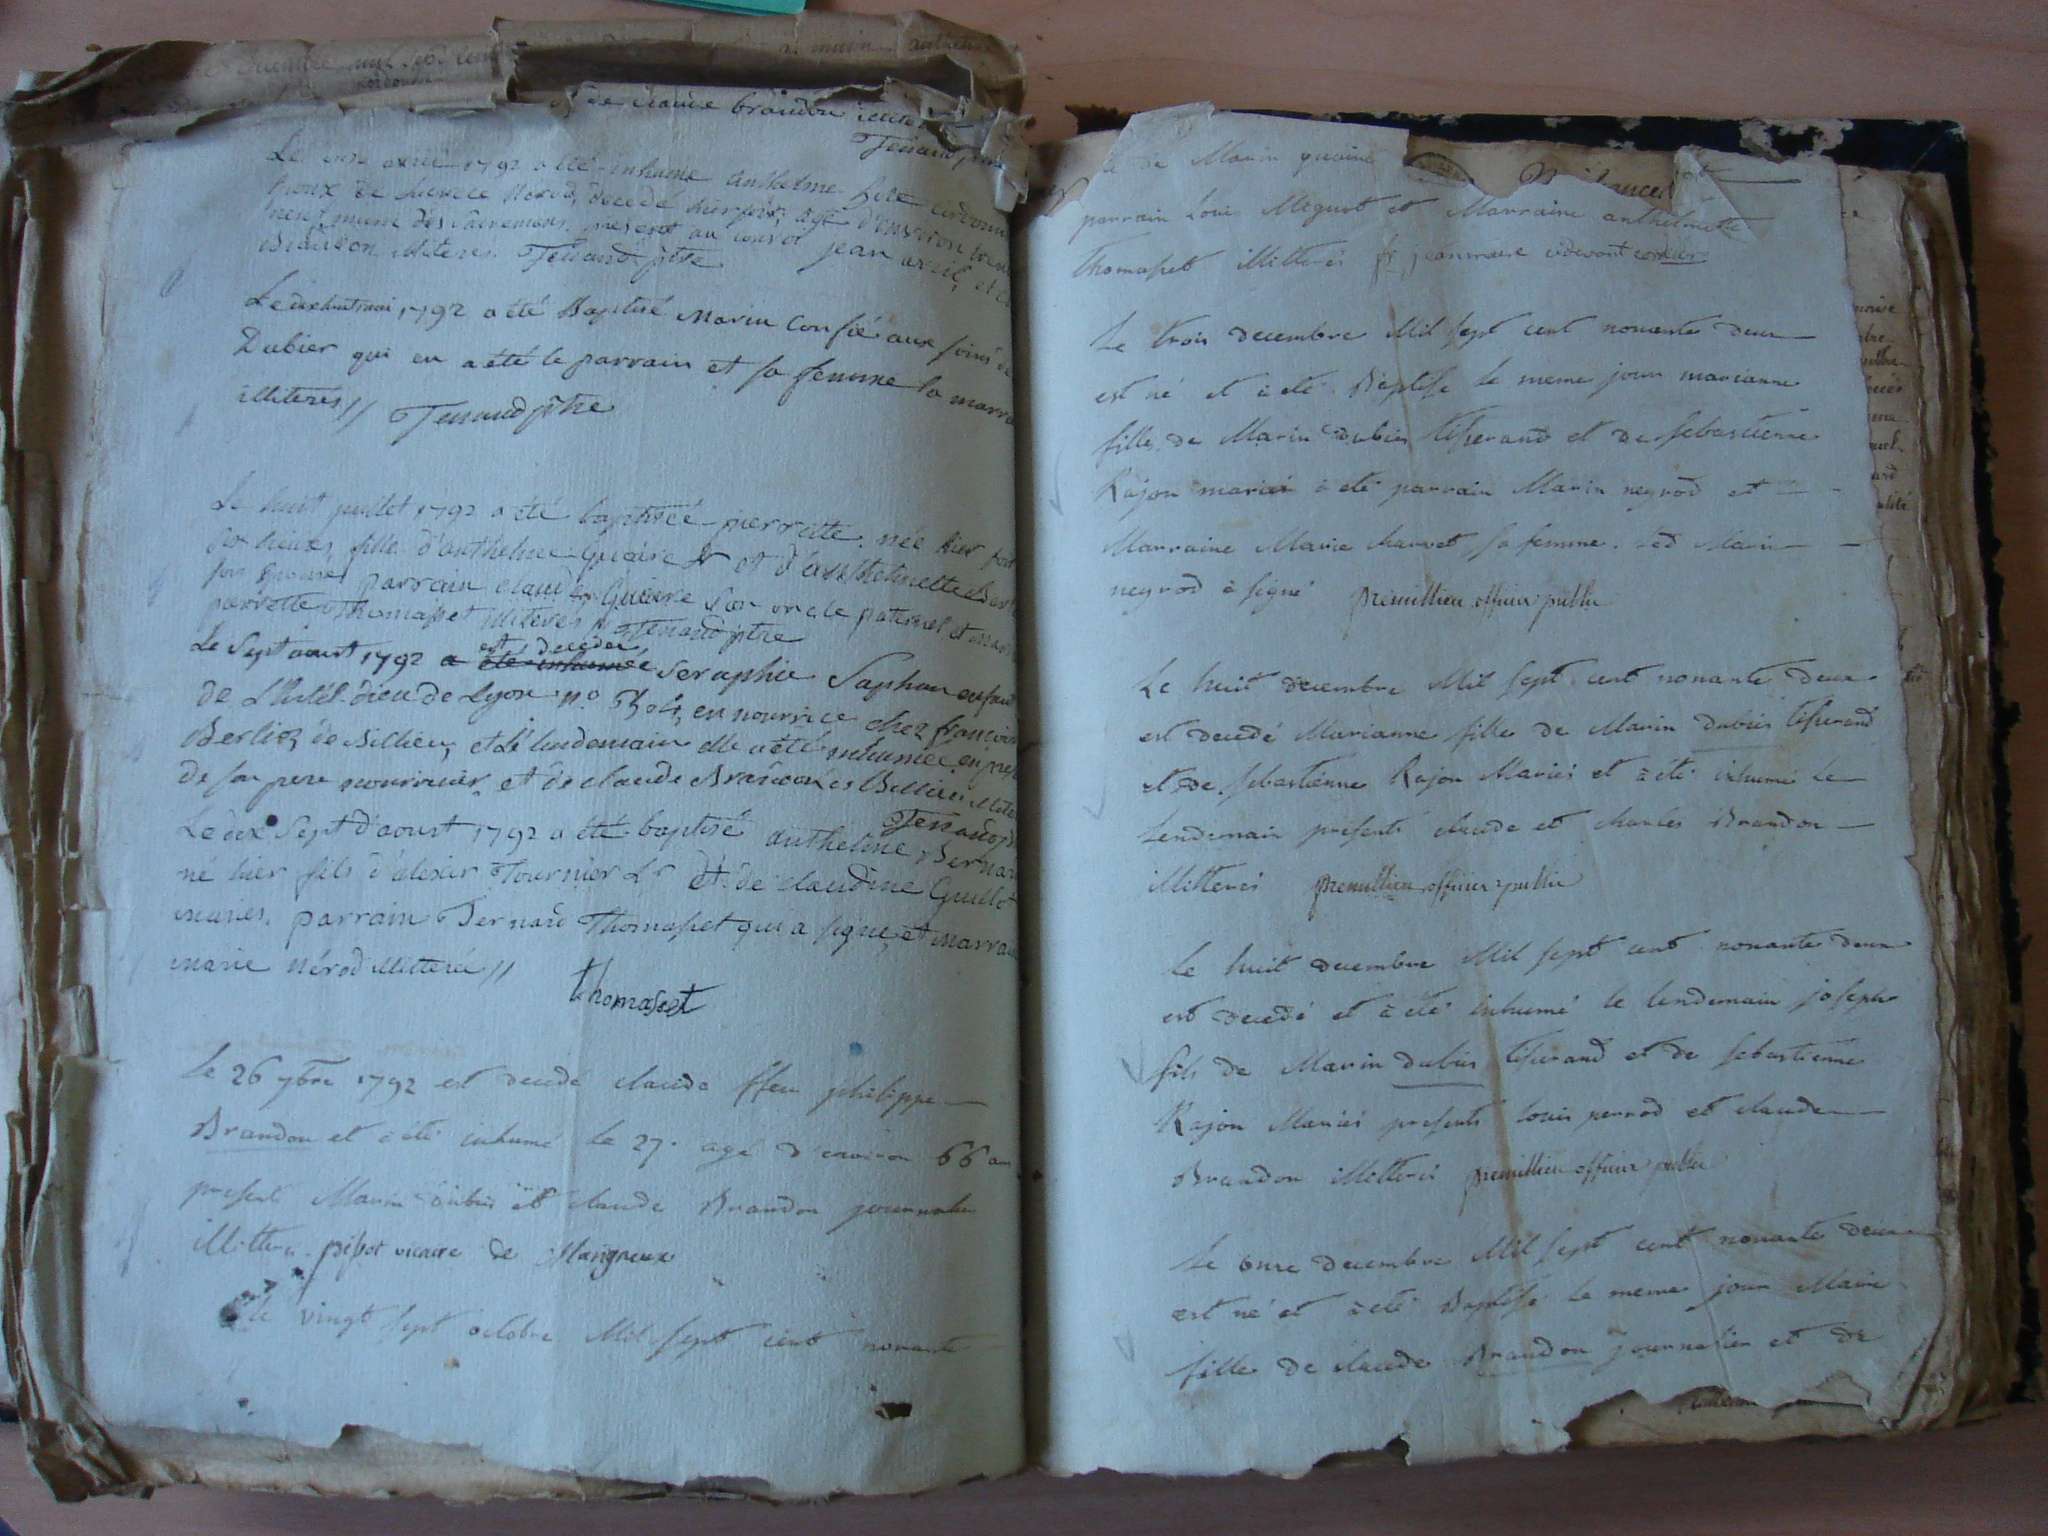 de Claude brandon illiteré
Tenand ptre
Le onze avril 1792 a été inhumé anthelme
decedé hier soir, agé d'environ
neuf muni des sacremens, present au convoi jean avril, et
Brandon illiterés. Tenand ptre
Le dixhuit mai 1792 a été Baptisé Marin Confié aux soins de
Dubier qui en a été le parrain et sa femme la marra
illiteres // Tenand ptre
Le huit juillet 1792 a été baptisée pierrette, née hier
fille d'anthelme Guière Lr et d'anthelmette
parrain claude Guiere son oncle paternel et
pierrette Thomasset illiterés // Tenand ptre
est décédée
Le Sept aoust 1792 a été inhumée Seraphie Saphon enfant
de L'hôtel-dieu de Lyon n.o en nourrice chez françois
Berlioz de Billieu, et le lendemain elle a été inhumée en pres
de son pere nourricier, et de claude Brandon de Billieu illite
Tenand ptre
Le dix Sept d'aoust 1792 a été baptisé anthelme Bernar
né hier fils d'alexis Tournier Lr et de claudine Guillot
mariés. parrain Bernard Thomasset qui a signé et marrai
marie Nérod illiterée //
thomasset
Le 26 7bre 1792 est decedé claude ffeu philippe
Brandon et à été inhumé le 27. agé d'environ 66 an
present Marin dubier et claude Brandon journalier
Illitere. pissot vicaire de Mangneux
Le vingt sept octobre Mil sept cent nonante
de Marin quaire
parrain Louis Moquet et Marraine anthelmette
thomasset Illitterés fr jeanmaire cidevant cordelier
Le trois decembre Mil sept cent nonante deux
est né et à été Baptisé le meme jour marianne
fille de Marin dubier tisserand et de sebastienne
Rajon mariés à eté parrain Marin negrod et
Marraine Marie charvet sa femme. led Marin
negrod à signé premillieu officier public
Le huit decembre Mil sept cent nonante deux
est decedé Marianne fille de Marin dubier tisserand
et de sebastienne Rajon Mariés et à été inhumé le
Lendemain presents claude et charles Brandon
Illitterés premillieu officier public
Le huit decembre Mil sept cent nonante deux
est decedé et à été inhumé le lendemain joseph
fils de Marin dubier tisserand et de sebastienne
Rajon Mariés presents louis perrod et claude
Brandon illitterés premillieu officier public
Le onze decembre Mil sept cent nonante deux
est né et à eté Baptisé le meme jour Marie
fille de claude Brandon journalier et de